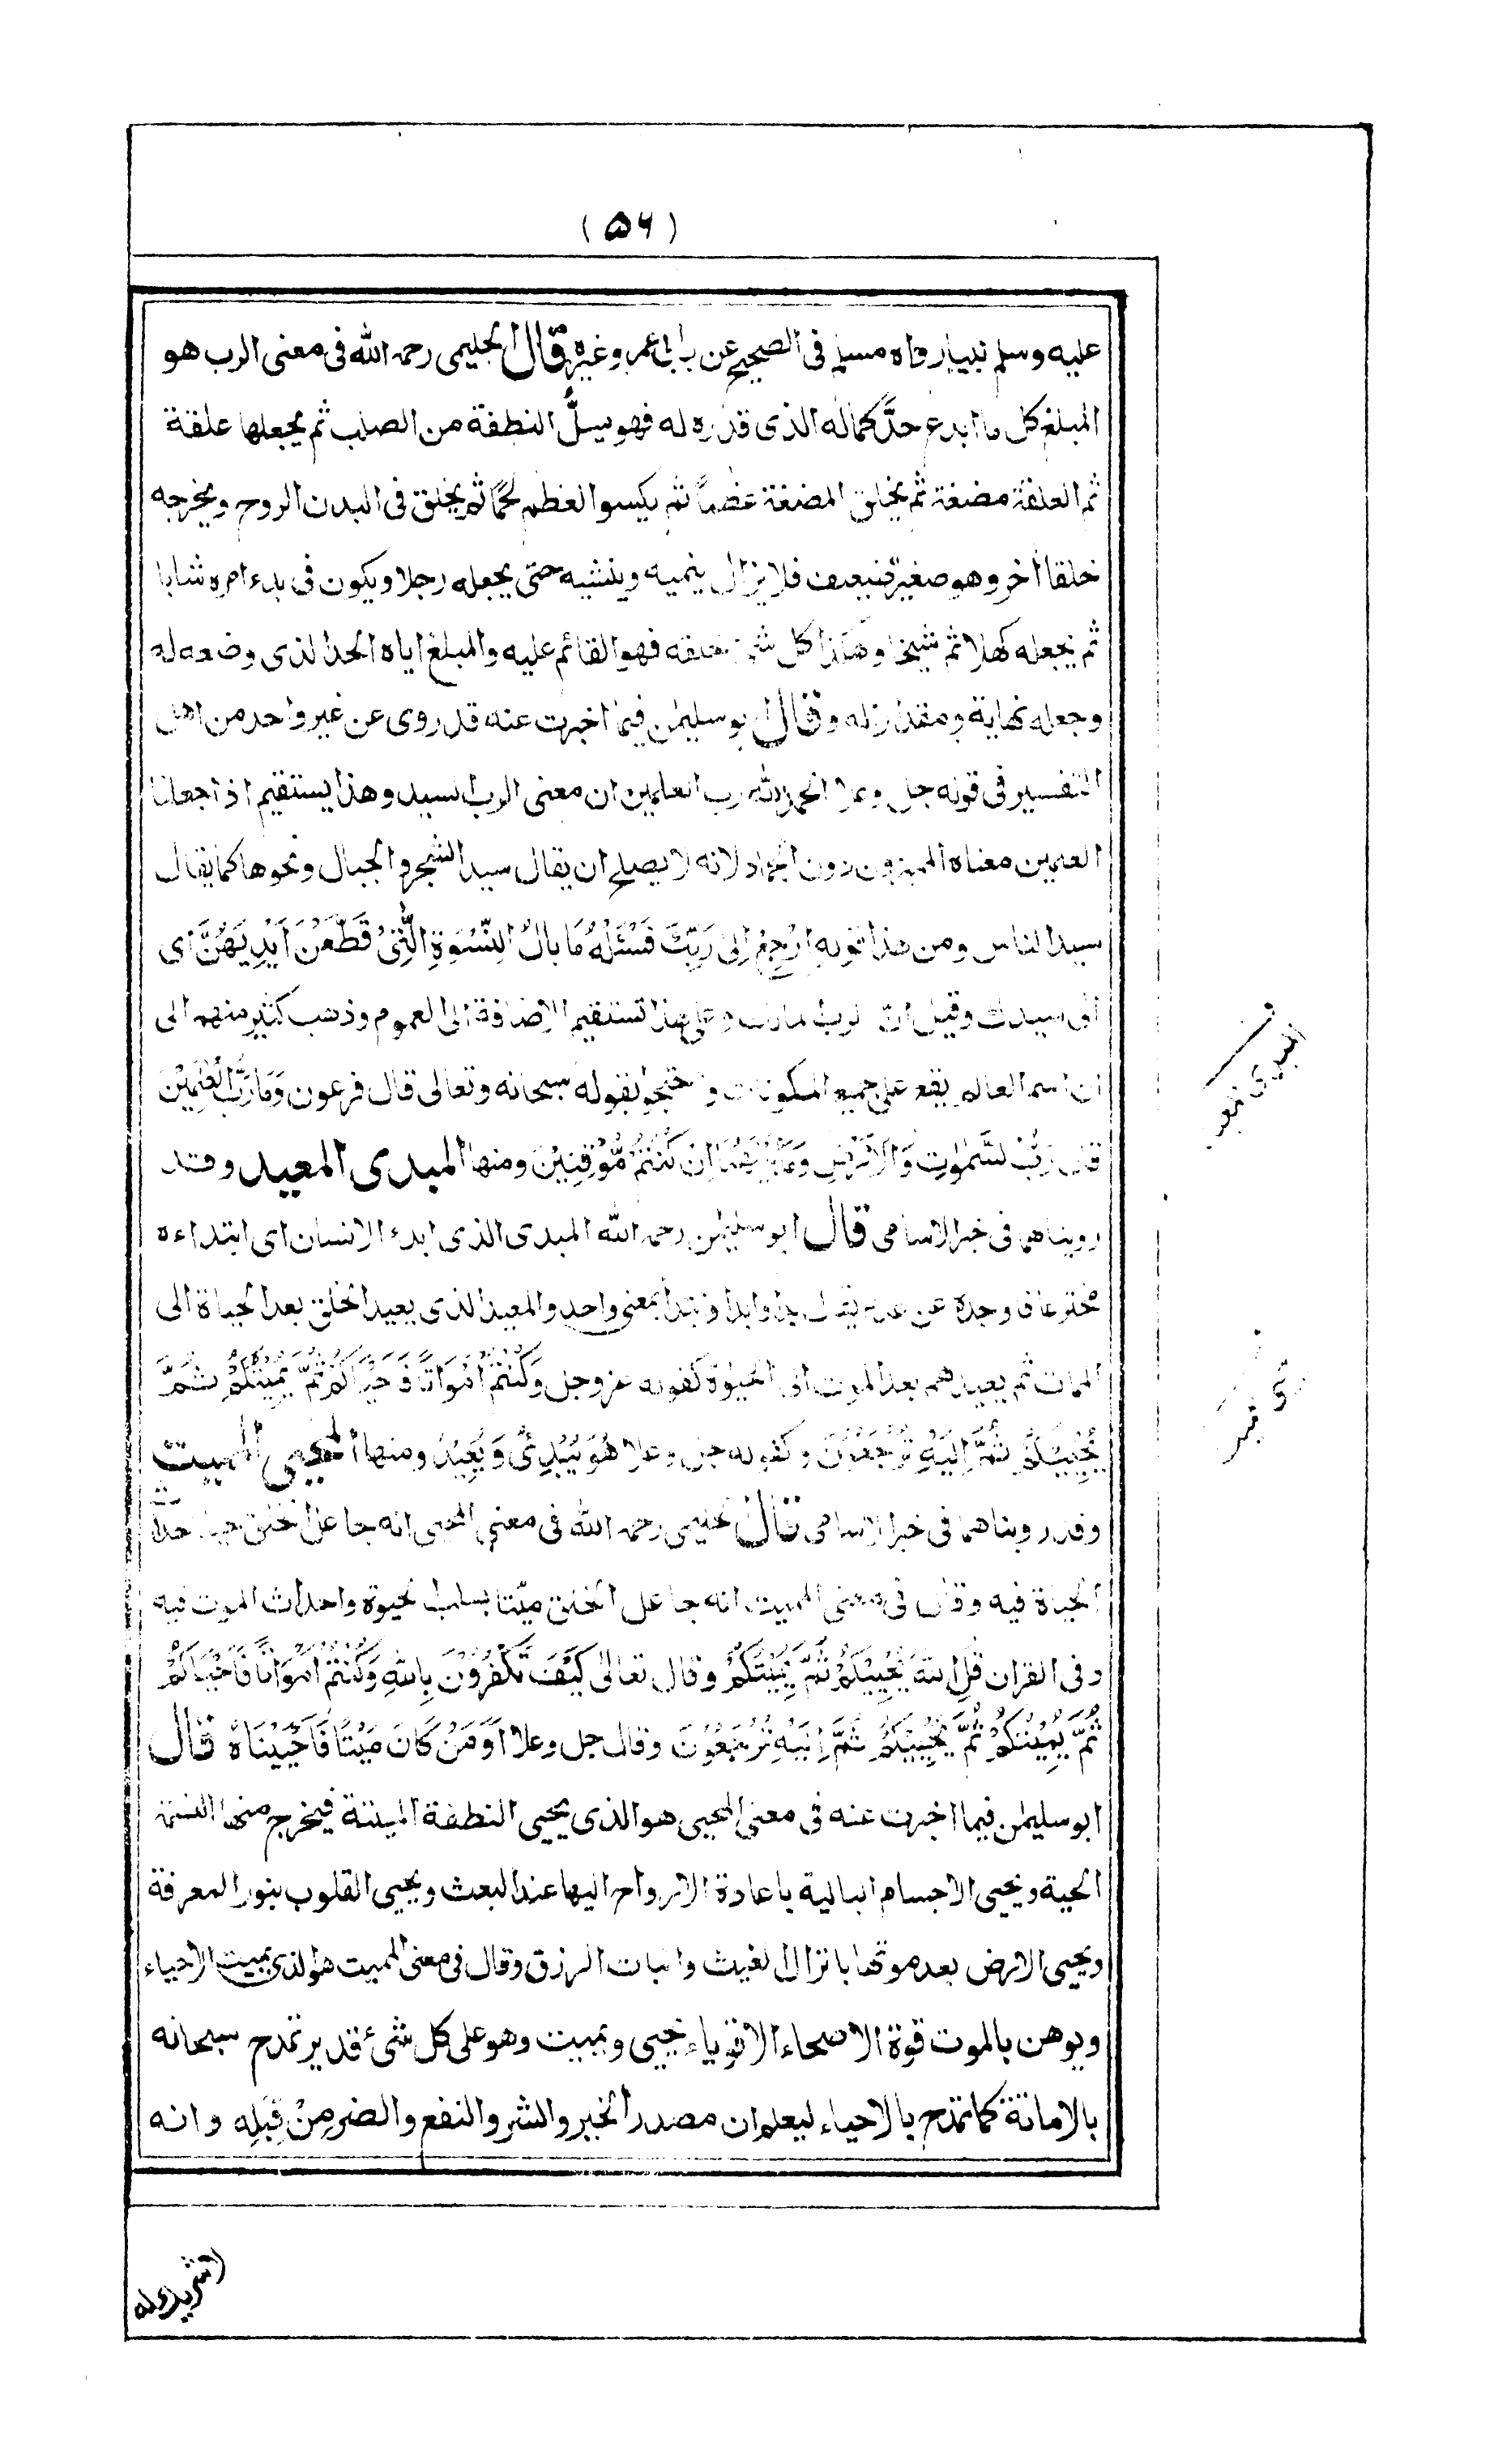 (۵۶)
عليه وسلم نبيا رواه مسلم فى الصحيح عن ابن ابى عمر وغيره قال الحليمى رحمه الله فى معنى الرب هو
المبلغ كل ما ابدع حدَّ كماله الذى قدره له فهو يسلُّ النطفة من الصلب ثم يجعلها علقة
ثم العلقة مضغة ثم يخلق المضغة عظماً ثم يكسوا العظم لحمًا ثم يخلق فى البدن الروح ويخرجه
خلقا أخر وهو صغير ضعيف فلا يزال ينميه وينشيه حتى يجعله رجلا ويكون فى بدء امره شابا
ثم يجعله كهلا ثم شيخا وهكذا كل شئ خلقه فهو القائم عليه والمبلغ اياه الحد الذى وضعه له
وجعله نهاية ومقدارا له وقال ابو سليمٰن فيما اخبرت عنه قد روى عن غير واحد من اهل
التفسير فى قوله جل وعلا الحمد لله رب العلمين ان معنى الرب السيد وهذا يستقيم اذا جعلنا
العلمين معناه المميزون دون الجماد لانه لا يصلح ان يقال سيد الشجر والجبال ونحوها كما يقال
سيد الناس ومن هذا قوله اِرْجِعْ اِلٰى رَبِّكَ فَسْئَلْهُ مَا بَالُ النِّسْوَةِ الّٰتِىْ قَطَّعْنَ اَيْدِيَهُنَّ اى
الى سيدك وقيل ان الرب المالك وعلى هذا تستقيم الاضافة الى العموم وذهب كثير منهم الى
ان اسم العالم يقع على جميع المكونات واحتجوا بقوله سبحانه وتعالى قال فرعون وَمَا رَبُّ الْعٰلَمِيْنَ
قال رَبُّ السَّمٰوٰتِ وَالْاَرْضِ وَمَا بَيْنَهُمَا اِنْ كُنْتُمْ مُّوْقِنِيْنَ ومنها المبدى المعيد وقد
رويناهما فى خبر الاسامى قال ابو سليمٰن رحمه الله المبدى الذى ابدء الانسان اى ابتداءه
مخترعا فاوجده عن عدم يقال بدأ وابدأ وابتدأ بمعنى واحد والمعيد الذى يعيد الخلق بعد الحياة الى
الممات ثم يعيدهم بعد الموت الى الحيوة كقوله عز وجل وَكُنْتُمْ اَمْوَاتًا فَاَحْيَاكُمْ ثُمَّ يُمِيْتُكُمْ ثُمَّ
يُحْيِيْكُمْ ثُمَّ اِلَيْهِ تُرْجَعُوْنَ وكقوله جل وعلا هُوَ يُبْدِئُ وَيُعِيْدُ ومنها المحيى المميت
وقد رويناهما فى خبر الاسامى قال الحليمى رحمه الله فى معنى المحيى انه جاعل الخلق حيا باحداث
الحياة فيه وقال فى معنى المميت انه جاعل الخلق ميّتا بسلب الحيوة واحداث الموت فيه
وفى القران قُلِ اللهُ يُحْيِيْكُمْ ثُمَّ يُمِيْتُكُمْ وقال تعالىٰ كَيْفَ تَكْفُرُوْنَ بِاللهِ وَكُنْتُمْ اَمْوَاتًا فَاَحْيَاكُمْ
ثُمَّ يُمِيْتُكُمْ ثُمَّ يُحْيِيْكُمْ ثُمَّ اِلَيْهِ تُرْجَعُوْنَ وقال جل وعلا اَوَمَنْ كَانَ مَيْتًا فَاَحْيَيْنَاهُ قال
ابو سليمٰن فيما اخبرت عنه فى معنى المحيى هو الذى يحيى النطفة الميتة فيخرج منها النسمة
الحية ويحيى الاجسام البالية باعادة الارواح اليها عند البعث ويحيى القلوب بنور المعرفة
ويحيى الارض بعد موتها بانزال الغيث وانبات الرزق وقال فى معنى المميت هو الذى يميت الاحياء
ويوهن بالموت قوة الاصحاء الاقوياء يحيى ويميت وهو على كل شئ قدير تمدح سبحانه
بالاماتة كما تمدح بالاحياء ليعلم ان مصدر الخير والشر والنفع والضر مِنْ قِبَلِه وانه
المبدى المعيد